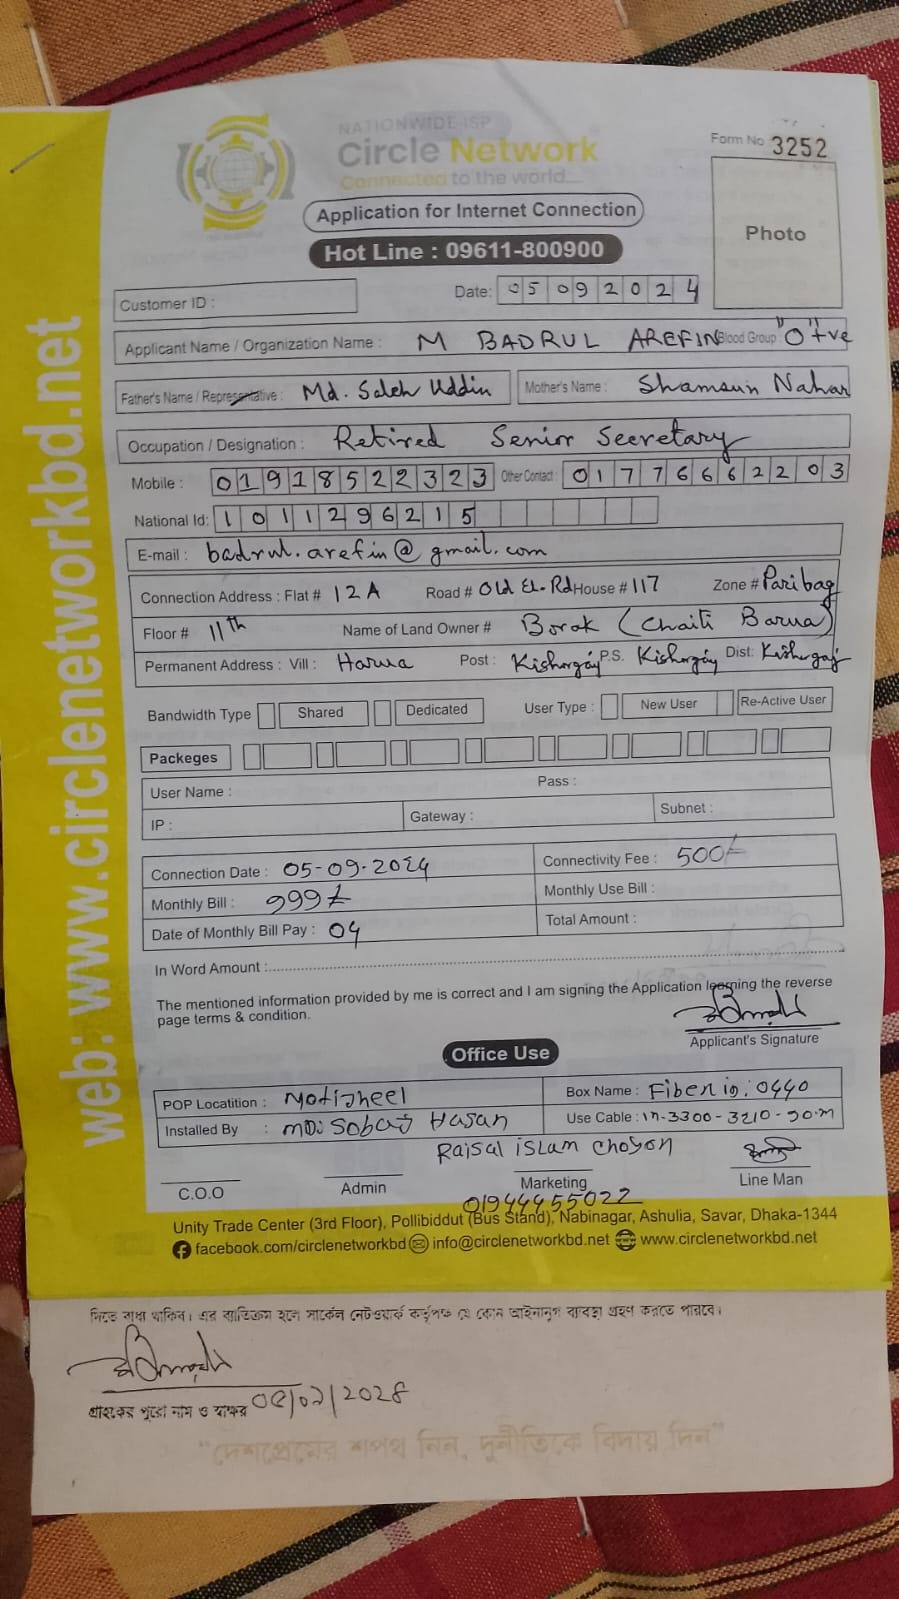 NATIONWIDE ISP
Circle Network
Connected to the world....
Form No 3252
Application for Internet Connection
Hot Line : 09611-800900
Photo
Customer ID :
Date: 05092024
Applicant Name / Organization Name : M BADRUL AREFIN Blood Group "O"+ve
Father's Name / Representative : Md. Saleh Uddin Mother's Name : Shamsun Nahar
Occupation / Designation : Retired Senior Secretary
Mobile : 01918522323 Other Contact : 01776662203
National Id: 1011296215
E-mail : badrul.arefin@gmail.com
Connection Address : Flat # 12A Road # Old El. Rd House # 117 Zone # Paribag
Floor # 11th Name of Land Owner # Borak (Chaiti Barua)
Permanent Address : Vill : Harua Post : Kishorganj P.S. Kishorganj Dist: Kishorganj
Bandwidth Type Shared Dedicated User Type : New User Re-Active User
Packeges
User Name : Pass :
IP : Gateway : Subnet :
Connection Date : 05-09-2024 Connectivity Fee : 500/-
Monthly Bill : 999/- Monthly Use Bill :
Date of Monthly Bill Pay : 04 Total Amount :
In Word Amount :
The mentioned information provided by me is correct and I am signing the Application learning the reverse
page terms & condition.
Applicant's Signature
Office Use
POP Locatition : Motijheel Box Name : Fiber in : 0440
Installed By : MD: Sobat Hasan Use Cable : in-3300-3210-90.m
Raisal islam Choyon
C.O.O Admin Marketing Line Man
01944455022
Unity Trade Center (3rd Floor), Pollibiddut (Bus Stand), Nabinagar, Ashulia, Savar, Dhaka-1344
facebook.com/circlenetworkbd info@circlenetworkbd.net www.circlenetworkbd.net
web: www.circlenetworkbd.net
দিতে বাধ্য থাকিব। এর ব্যতিক্রম হলে সার্কেল নেটওয়ার্ক কর্তৃপক্ষ যে কোন আইনানুগ ব্যবস্থা গ্রহণ করতে পারবে।
গ্রাহকের পুরো নাম ও স্বাক্ষর ০৫/০৯/২০২৪
"দেশপ্রেমের শপথ নিন, দুর্নীতিকে বিদায় দিন"